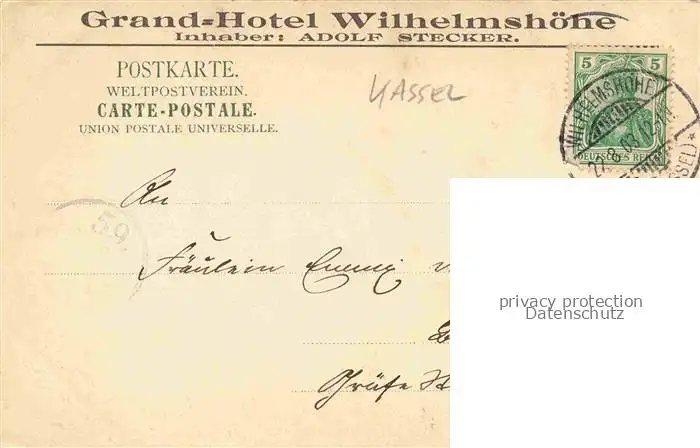 Grand-Hotel Wilhelmshöhe
Inhaber: ADOLF STECKER.
POSTKARTE.
WELTPOSTVEREIN.
CARTE-POSTALE.
UNION POSTALE UNIVERSELLE.
KASSEL
5 5
DEUTSCHES REICH
WILHELMSHÖHE
27.8.03.
(CASSEL) *
59
An
Fräulein Emmi v
Gräfe St
privacy protection
Datenschutz